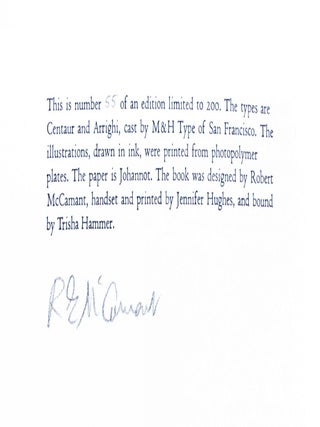 This is number 55 of an edition limited to 200. The types are
Centaur and Arrighi, cast by M&H Type of San Francisco. The
illustrations, drawn in ink, were printed from photopolymer
plates. The paper is Johannot. The book was designed by Robert
McCamant, handset and printed by Jennifer Hughes, and bound
by Trisha Hammer.
R E McCamant